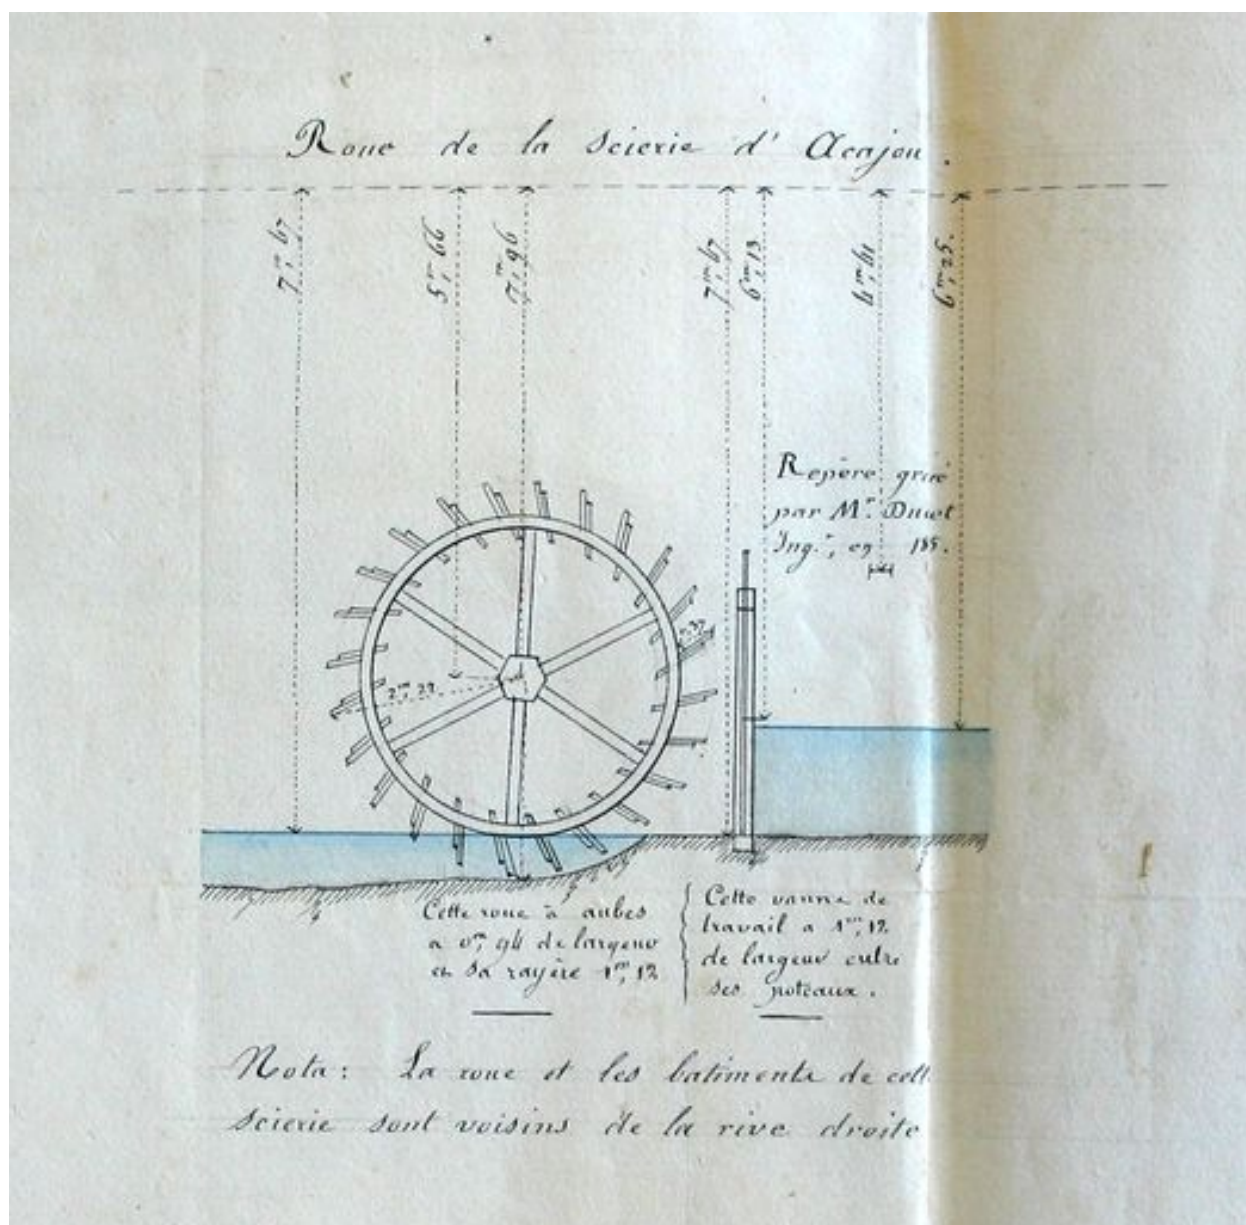 Roue de la scierie d'Acajou.
7,m67
5,m66
7,m96
7,m67
6,m13
4,m41
6,m25.
Repère gravé
par Mr.
Ingr., en 185.
2m,29
Cette roue à aubes
a 0m,94 de largeur
et sa rayère 1m,12
Cette vanne de
travail a 1m,12
de largeur entre
ses poteaux.
Nota: La roue et les batiments de cett
scierie sont voisins de la rive droite